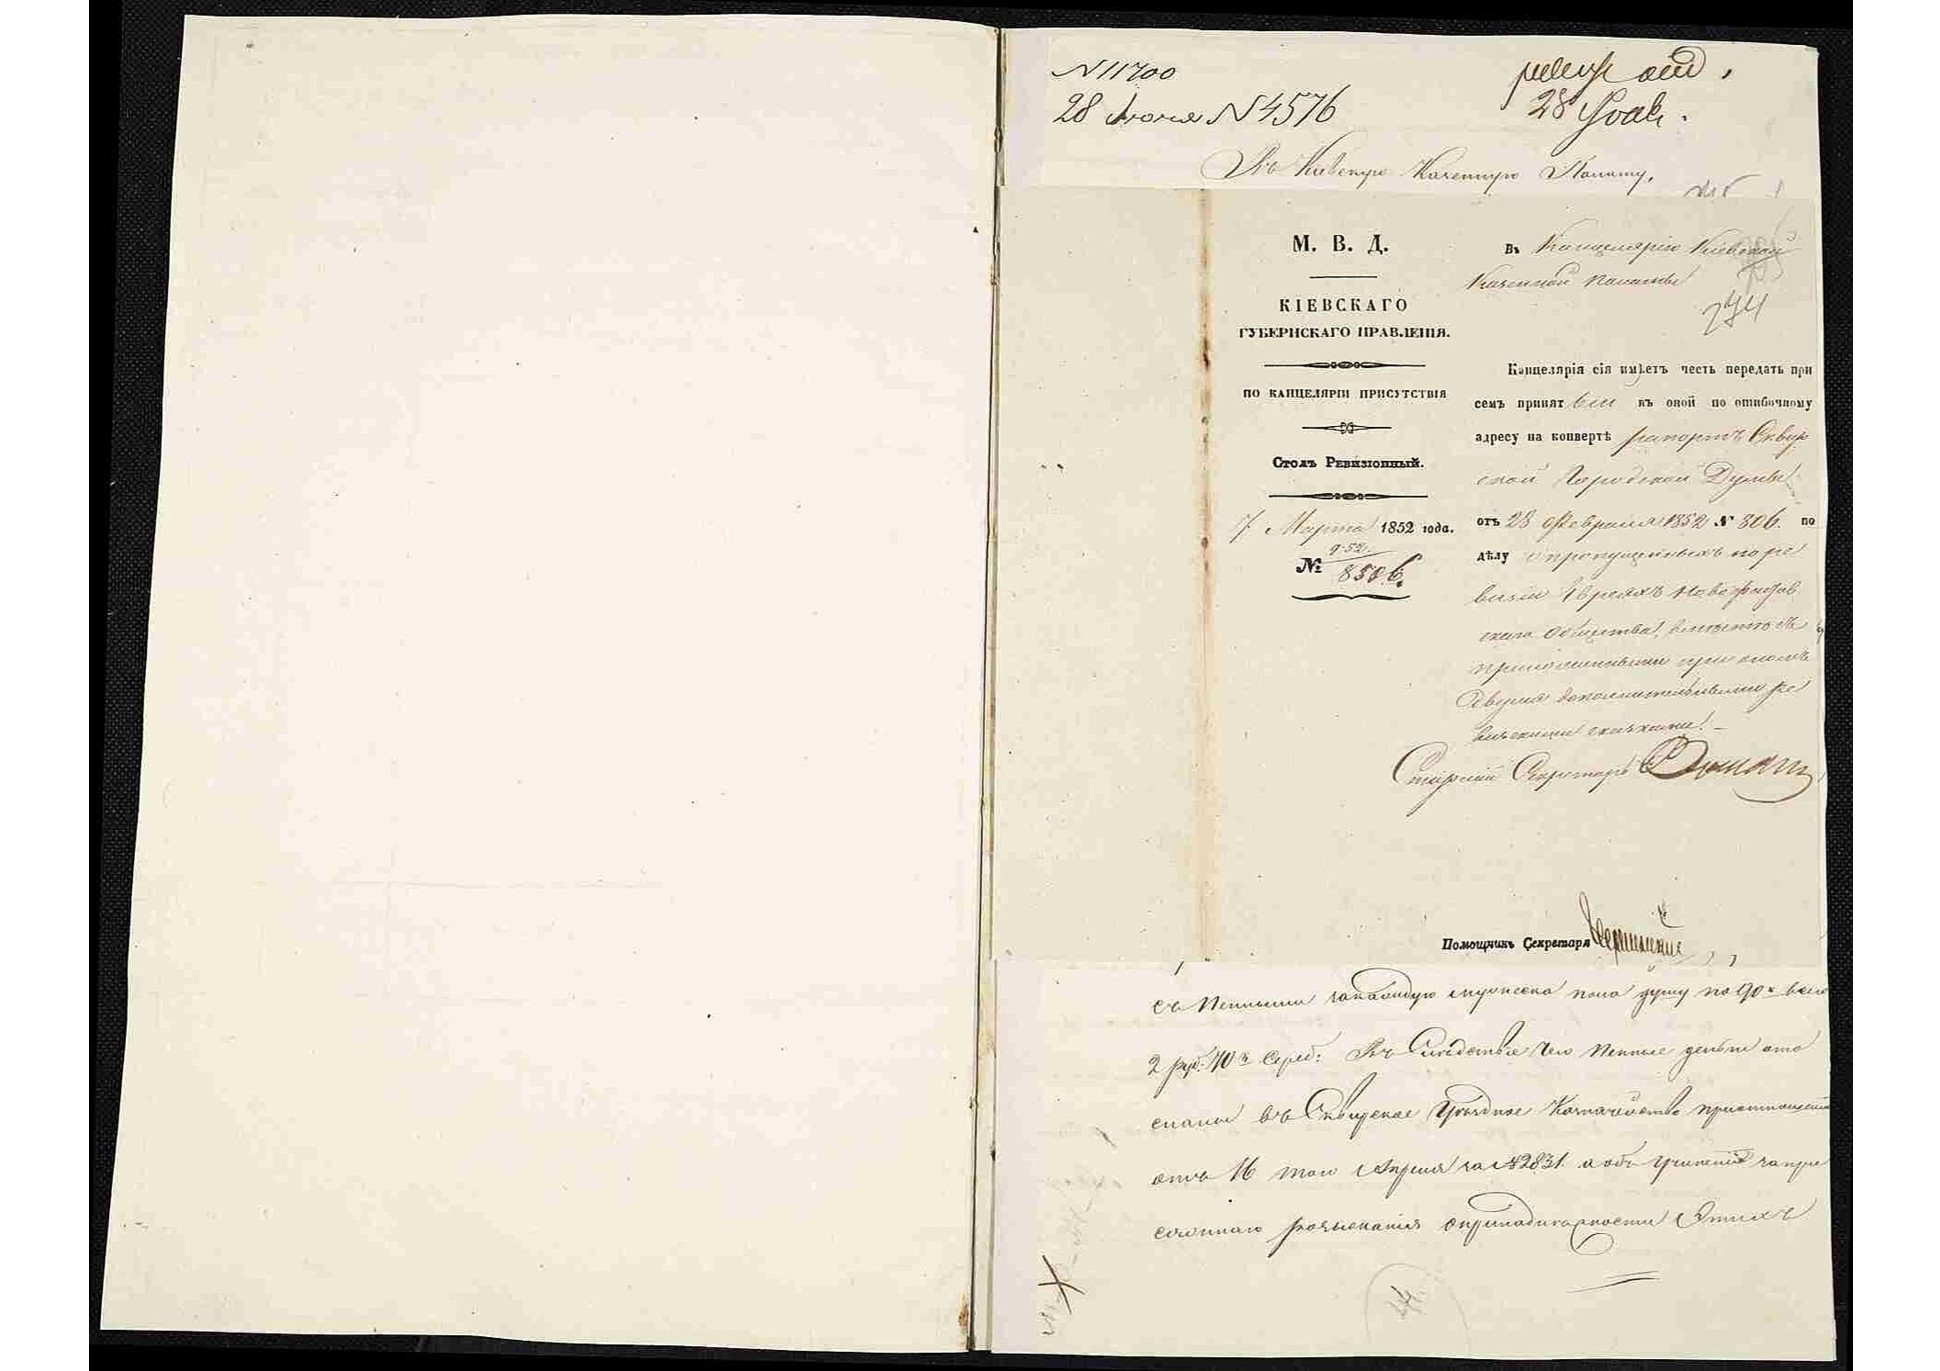 N 11700
28 Июня N 4576
28 
Въ Кіевскую Казенную Палату,
М. В. Д.
КІЕВСКАГО
ГУБЕРНСКАГО ПРАВЛЕНІЯ.
ПО КАНЦЕЛЯРІИ ПРИСУТСТВІЯ
Столъ Ревизіонный.
7 Марта 1852 года.
№ 8506.
Въ Канцелярію Кіевской
Казенной палаты
274
Канцелярія сія имѣетъ честь передать при
семъ принят къ оной по ошибочному
адресу на конвертѣ рапортъ Сквир
ской Городской Думы
отъ 28 Февраля 1852 N 806. по
дѣлу о пропущенныхъ по ре
визіи Евреяхъ Новофастов
скаго Общества, вмѣстѣ съ
приложенными при ономъ
двумя дополнительными ре
визскими сказками.
Старшій Секретарь
Помощникъ Секретаря
съ пенными за каждую мужеска пола душу по 70 к всего
2 руб. 40 к сереб: Въ Слѣдствіе чего пенные деньги ото
сланы въ Сквирское Уѣздное Казначейство при отношеніи
отъ 16 того Апреля за N 2831. а объ учиненіи
розысканія о принадлежности Этихъ